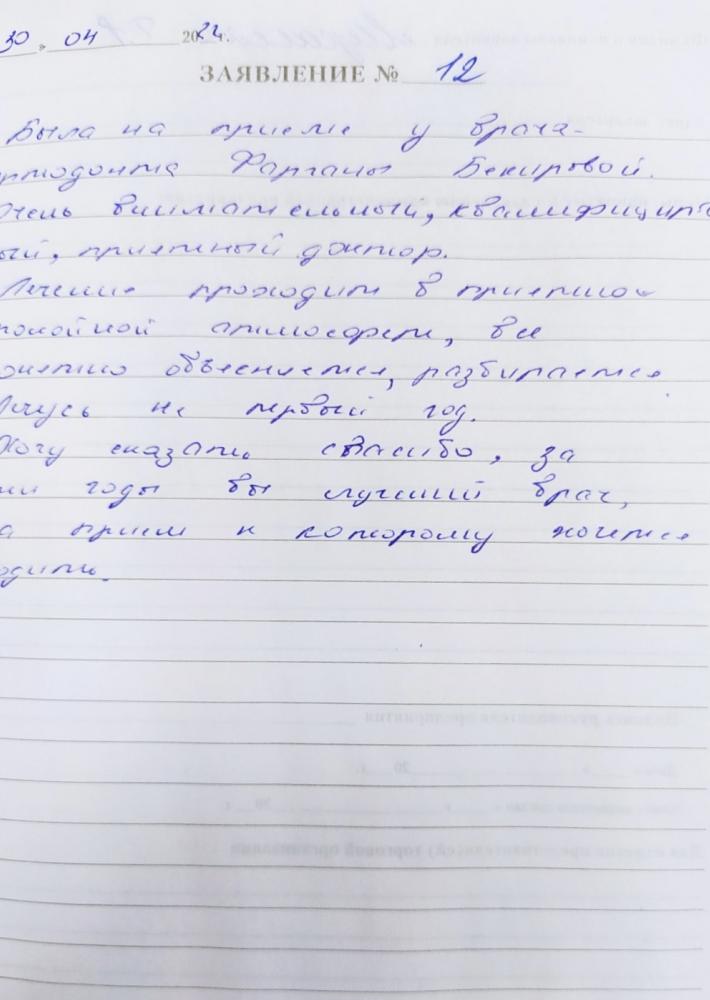 30 » 04 2024г.
ЗАЯВЛЕНИЕ № 12
Была на приеме у врача-
ортодонта Фарганы Бекировой.
Очень внимательный, квалифициро
ый, приятный доктор.
Лечение проходит в приятно
покойной атмосфере, все
онятно объясняется, разбирается.
Лечусь не первый год.
Хочу сказать спасибо, за
ти годы вы лучший врач,
а прием к которому хочется
одить.